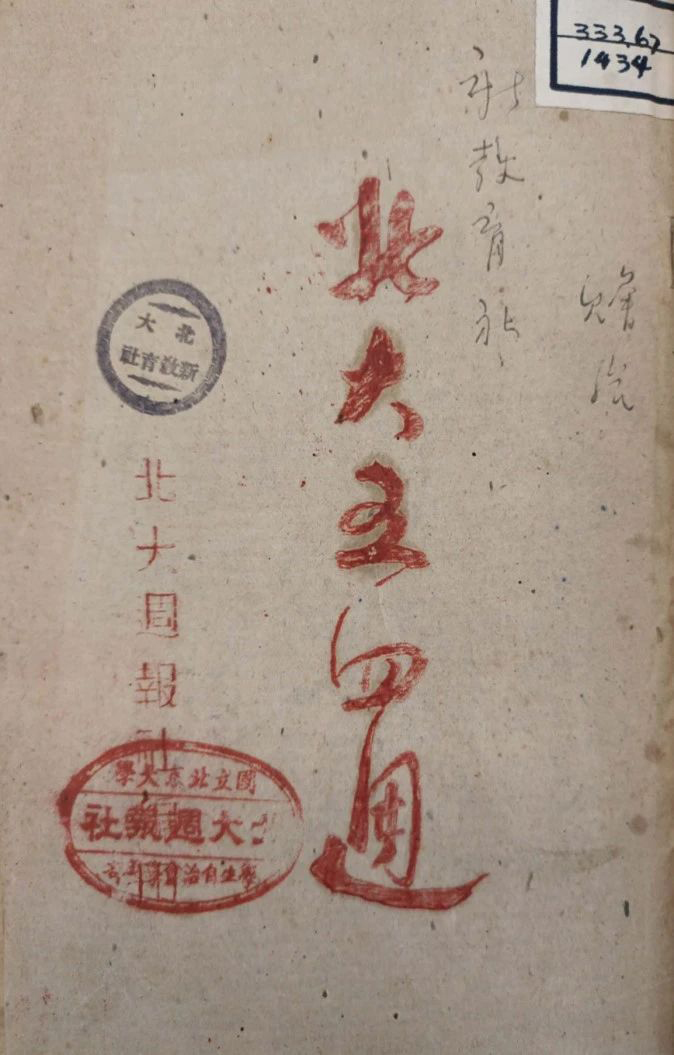 333.67
1434
教育社
北大五四週
北大
新教育社
北大週報社
國立北京大學
北大週報社
學生自治會